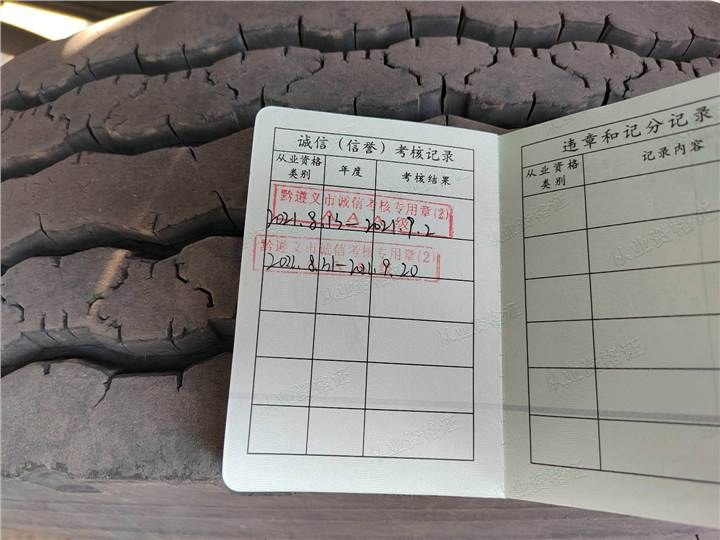 诚信（信誉）考核记录
从业资格类别 年度 考核结果
黔遵义市诚信考核专用章(2)
AA 级
2021.8.13-2021.9.2
黔遵义市诚信考核专用章(2)
2021.8.31-2021.9.20
违章和记分记录
从业资格类别 记录内容
从业资格证